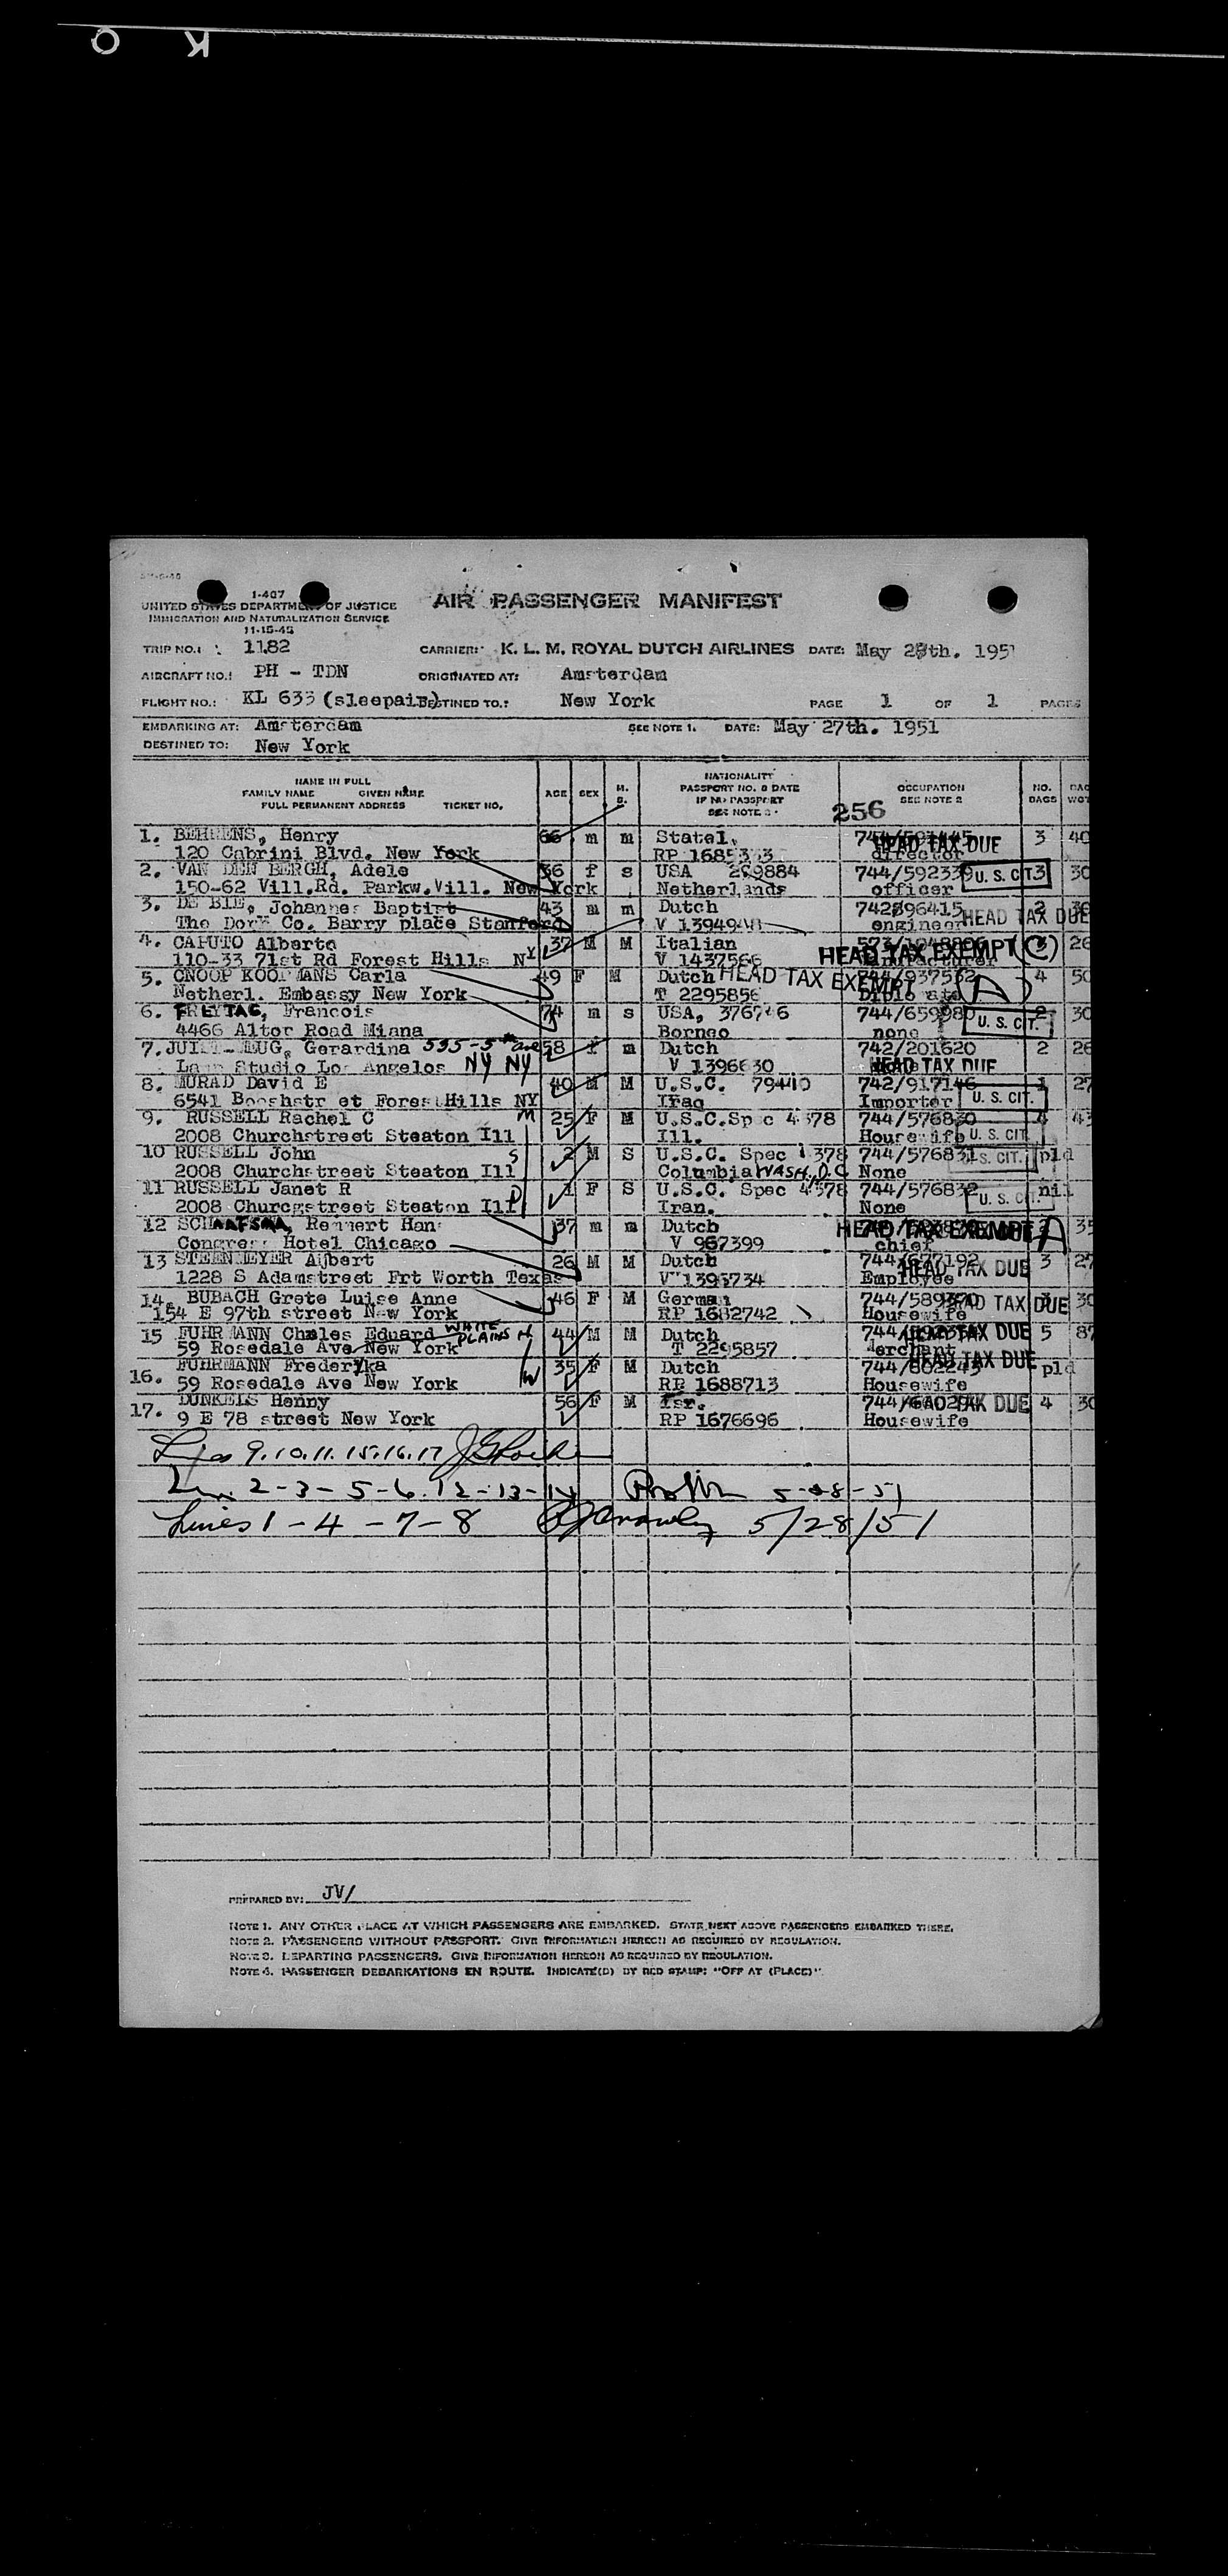 O K
1-407
UNITED STATES DEPARTMENT OF JUSTICE
IMMIGRATION AND NATURALIZATION SERVICE
11-15-45
AIR PASSENGER MANIFEST
TRIP NO.: 1182 CARRIER: K. L. M. ROYAL DUTCH AIRLINES DATE: May 28th. 1951
AIRCRAFT NO.: PH - TDN ORIGINATED AT: Amsterdam
FLIGHT NO.: KL 633 (sleepair) DESTINED TO.: New York PAGE 1 OF 1 PAGES
EMBARKING AT: Amsterdam SEE NOTE 1. DATE: May 27th. 1951
DESTINED TO: New York
NAME IN FULL
FAMILY NAME GIVEN NAME
FULL PERMANENT ADDRESS TICKET NO. AGE SEX M. S. NATIONALITY PASSPORT NO. & DATE IF NO PASSPORT SEE NOTE 2 OCCUPATION SEE NOTE 2 NO. BAGS
256
1. BEHRENS, Henry 66 m m Statel. HEAD TAX DUE 3 40
120 Cabrini Blvd. New York RP director
2. VAN DEN BERGH, Adele 36 f s USA 744/592339 U. S. CIT. 3 30
150-62 Vill.Rd. Parkw.Vill. New York Netherlands officer
3. DE BIE, Johannes Baptist 43 m m Dutch 742/96415 2 30
The Dorr Co. Barry place Stanford V engineer HEAD TAX DUE
4. CAPUTO Alberto 37 M M Italian HEAD TAX EXEMPT (C) 26
110-33 71st Rd Forest Hills NY V 1437566
5. CNOOP KOOPMANS Carla 49 F M Dutch HEAD TAX EXEMPT (A) 4 50
Netherl. Embassy New York T 2295856
6. FREYTAG, Francois 74 m s USA, 744/659980 2 30
4466 Alton Road Miami Borneo none U. S. CIT.
7. Gerardina 535-5th ave 58 f m Dutch 742/201620 2 26
Studio Los Angelos NY NY V 1396630 HEAD TAX DUE
8. MURAD David E 40 M M U.S.C. 79440 742/917146 1 27
6541 Forest Hills NY Iraq Importer U. S. CIT.
9. RUSSELL Rachel C M 25 F M U.S.C.Spec 4378 744/576830 4 43
2008 Churchstreet Steaton Ill Ill. Housewife U. S. CIT.
10 RUSSELL John S 2 M S U.S.C. Spec 4378 744/576831 pld
2008 Churchstreet Steaton Ill Columbia WASH. D.C. None U. S. CIT.
11 RUSSELL Janet R D 1 F S U.S.C. Spec 4378 744/576832 nil
2008 Churcgstreet Steaton Ill Iran. None U. S. CIT.
12 SCHAAFSMA, Reinert Hans 37 m m Dutch HEAD TAX EXEMPT A 35
Congress Hotel Chicago V 967399 chief
13 STEENMEYER Albert 26 M M Dutch 744/677192 3 27
1228 S Adamstreet Frt Worth Texas V 1393734 Employee HEAD TAX DUE
14. BUBACH Grete Luise Anne 46 F M German 744/589390 3 30
154 E 97th street New York RP 1682742 Housewife HEAD TAX DUE
15 FUHRMANN Chales Eduard WHITE PLAINS H 44 M M Dutch HEAD TAX DUE 5 87
59 Rosedale Ave New York T 2295857 Merchant
16. FUHRMANN Frederyka W 35 F M Dutch 744/802243 HEAD TAX DUE pld
59 Rosedale Ave New York RP 1688713 Housewife
17. DUNKELS Henny 56 F M Isr. HEAD TAX DUE 4 30
9 E 78 street New York RP 1676696 Housewife
Lines 9.10.11.15.16.17
Lines 2-3-5-6.12-13-14 5-28-51
Lines 1-4-7-8 5/28/51
PREPARED BY: JV/
NOTE 1. ANY OTHER PLACE AT WHICH PASSENGERS ARE EMBARKED. STATE NEXT ABOVE PASSENGERS EMBARKED THERE.
NOTE 2. PASSENGERS WITHOUT PASSPORT. GIVE INFORMATION HEREON AS REQUIRED BY REGULATION.
NOTE 3. DEPARTING PASSENGERS. GIVE INFORMATION HEREON AS REQUIRED BY REGULATION.
NOTE 4. PASSENGER DEBARKATIONS EN ROUTE. INDICATE(D) BY RED STAMP: "OFF AT (PLACE)".